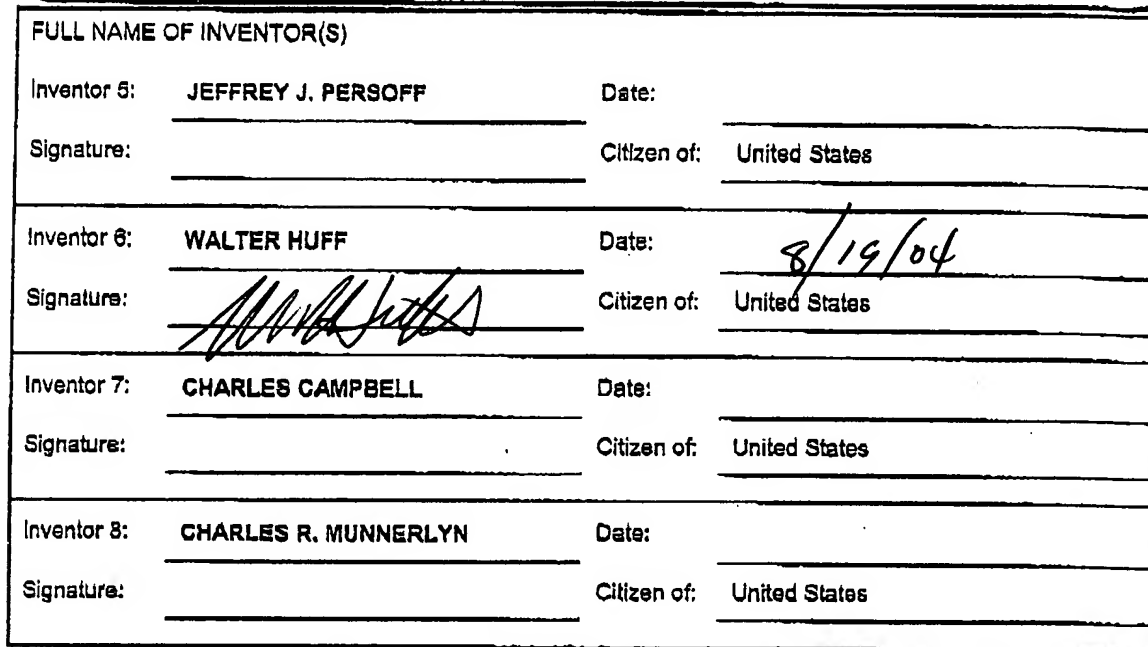 FULL NAME OF INVENTOR(S)
Inventor 5: JEFFREY J. PERSOFF Date:
Signature: Citizen of: United States
Inventor 6: WALTER HUFF Date: 8/19/04
Signature: Citizen of: United States
Inventor 7: CHARLES CAMPBELL Date:
Signature: Citizen of: United States
Inventor 8: CHARLES R. MUNNERLYN Date:
Signature: Citizen of: United States